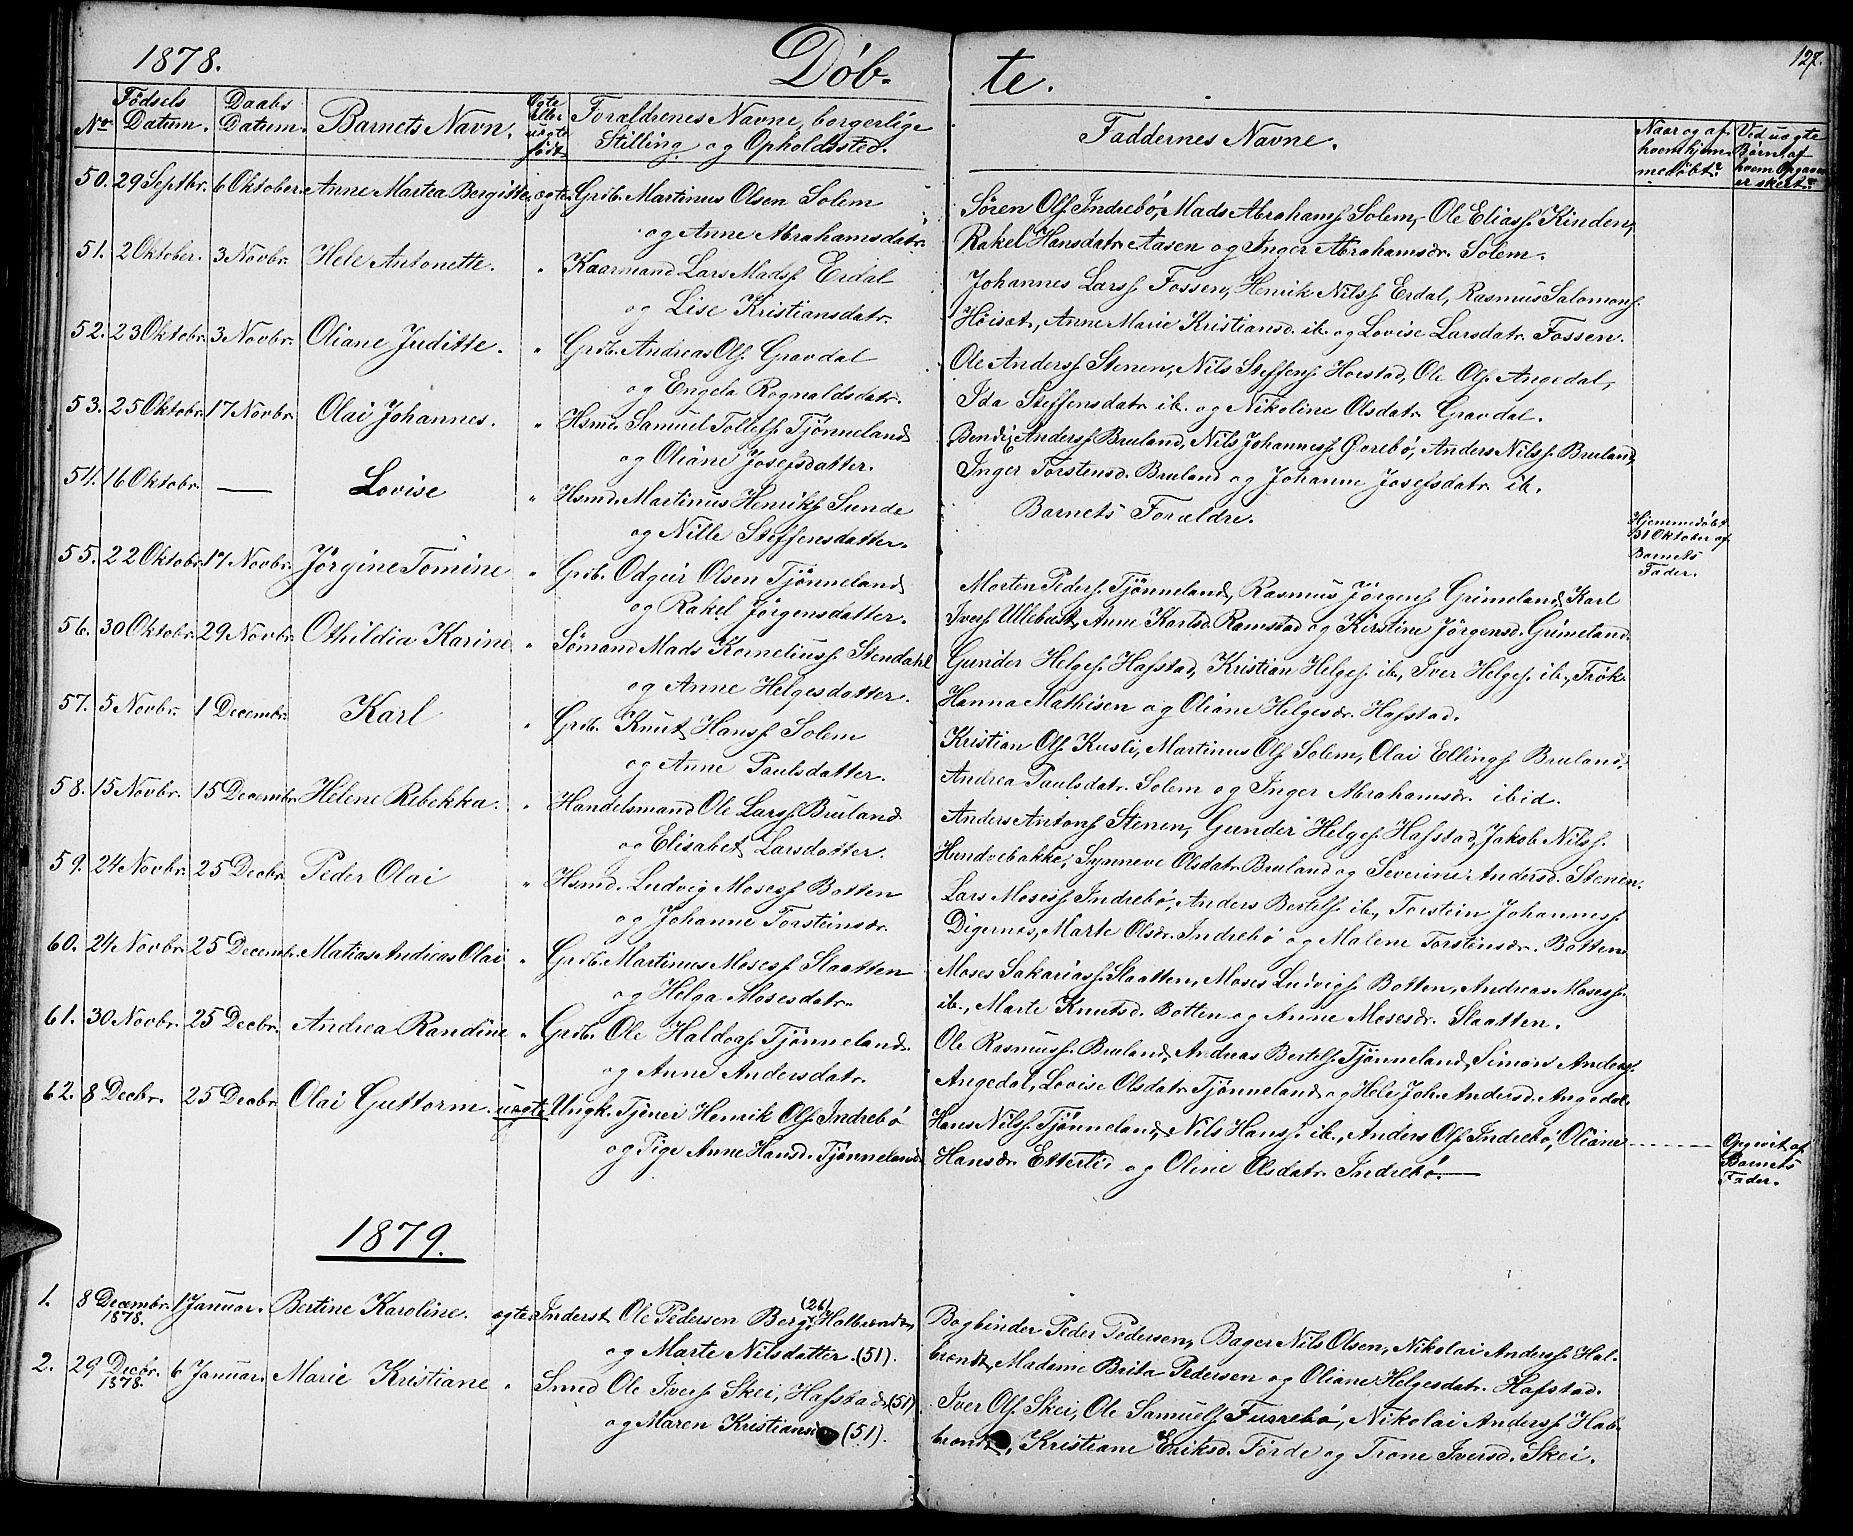 1878. Døb- te. 127.
No Fødsels Datum. Daabs Datum. Barnets Navn. Ægte eller uægte født Forældrenes Navne, borgerlige Stilling og Opholdssted. Faddernes Navne. Naar og af hvem hjemmedøbt? Ved uægte Børn, af hvem Opgaven er skeet?
50. 29 Septbr. 6 Oktober. Anne Martea Bergitte. ægte. Grdb. Martinus Olsen Solem
og Anne Abrahamsdatr.
Søren Ols. Indrebø, Mads Abrahams. Solem, Ole Eliass. Kinden,
Rakel Hansdatr. Aasen og Inger Abrahamsdr. Solem.
51. 2 Oktober. 3 Novbr. Hele Antonette. " Kaarmand Lars Mads. Erdal
og Lise Kristiansdatr.
Johannes Lars. Fossen, Henrik Nils. Erdal, Rasmus Salomons.
Høisæt, Anne Marie Kristiansd. ib. og Lovise Larsdatr. Fossen.
52. 23 Oktobr. 3 Novbr. Oliane Juditte. " Grdb. Andreas Ols. Gravdal
og Engela Rognaldsdatr.
Ole Anders. Stenen, Nils Steffens. Horstad, Ole Ols. Angedal,
Ida Steffensdatr. ib. og Nikoline Olsdatr. Gravdal.
53. 25 Oktobr. 17 Novbr. Olai Johannes. " Hsmd. Samuel Tollefs. Tjønneland
og Oliane Josefsdatter.
Bendix Anders. Bruland, Nils Johanness. Gjorebø, Anders Nils. Bruland,
Inger Torstensd. Bruland og Johanne Josefsdatr. ib.
54. 16 Oktobr. — Lovise " Hsmd. Martinus Henriks. Sunde
og Nille Steffensdatter.
Barnets Forældre.
Hjemmedøbt
31 Oktober af
Barnets
Fader.
55. 22 Oktobr. 17 Novbr. Jørgine Tomine " Grdb. Odgeir Olsen Tjønneland
og Rakel Jørgensdatter.
Morten Peders. Tjønneland, Rasmus Jørgens. Grimeland, Karl
Ivers. Ullebust, Anne Karlsd. Ramstad og Kirstine Jørgensd. Grimeland.
56. 30 Oktobr. 29 Novbr. Othildia Karine " Sømand Mads Korneliuss. Stendahl
og Anne Helgesdatter.
Gunder Helges. Hafstad, Kristian Helges. ib., Iver Helges. ib., Frøk.
Hanna Mathisen og Oliane Helgesdr. Hafstad.
57. 5 Novbr. 1 Decembr. Karl " Grdb. Knut Hans. Solem
og Anne Paulsdatter.
Kristian Ols. Kusli, Martinus Ols. Solem, Olai Ellings. Bruland,
Andrea Paulsdatr. Solem og Inger Abrahamsdr. ibid.
58. 15 Novbr. 15 Decembr. Helene Rebekka. " Handelsmand Ole Lars. Bruland
og Elisabet Larsdatter.
Anders Antons. Stenen, Gunder Helges. Hafstad, Jakob Nils.
Hundvebakke, Synneve Olsdatr. Bruland og Severine Andersd. Stenen.
59. 24 Novbr. 25 Decbr. Peder Olai " Hsmd. Ludvig Moses. Botten
og Johanne Torsteinsdr.
Lars Moses. Indrebø, Anders Bertels. ib., Torstein Johanness.
Digernes, Marte Olsdr. Indrebø og Malene Torsteinsdr. Botten.
60. 24 Novbr. 25 Decembr. Matias Andreas Olai " Grdb. Martinus Moses. Slaatten
og Helga Mosesdatr.
Moses Sakarias. Slaatten, Moses Ludvigs. Botten, Andreas Moses.
ib., Marte Knutsd. Botten og Anne Mosesdr. Slaatten.
61. 30 Novbr. 25 Decbr. Andrea Randine " Grdb. Ole Haldors. Tjønneland
og Anne Andersdatr.
Ole Rasmuss. Bruland, Andreas Bertels. Tjønneland, Simon Anders.
Angedal, Lovise Olsdatr. Tjønneland og Hele Joh. Andersd. Angedal.
62. 8 Decbr. 25 Decbr. Olai Guttorm. uægte Ungk. Tjener Henrik Ols. Indrebø
og Pige Anne Hansd. Tjønneland
Hans Nils. Tjønneland, Nils Hans. ib., Anders Ols. Indrebø, Oliane
Hansdr. Etterlid og Oline Olsdatr. Indrebø.
Opgivet af
Barnets
Fader.
1879.
1. 8 Decembr. 1878. 1 Januar. Bertine Karoline. ægte Inderst Ole Pedersen Berg, (26) Halbrendt,
og Marte Nilsdatter. (51).
Bogbinder Peder Pedersen, Bager Nils Olsen, Nikolai Anders. Hal-
brendt, Madame Brita Pedersen og Oliane Helgesdatr. Hafstad.
2. 29 Decbr. 1878. 6 Januar. Marie Kristiane " Smed Ole Ivers. Skei, Hafstad (51)
og Maren Kristians (51).
Iver Ols. Skei, Ole Samuels. Furrebø, Nikolai Anders. Hal-
brendt, Kristiane Eriksd. Førde og Trone Iversd. Skei.